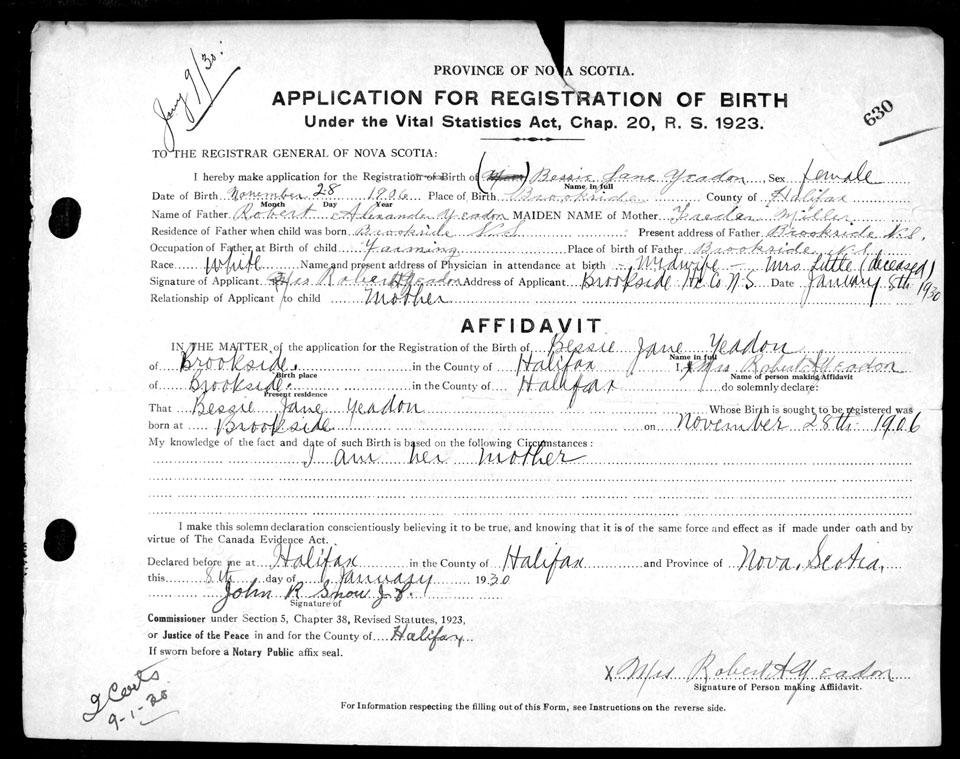 Jany 9/30.
PROVINCE OF NOVA SCOTIA.
630
APPLICATION FOR REGISTRATION OF BIRTH
Under the Vital Statistics Act, Chap. 20, R. S. 1923.
TO THE REGISTRAR GENERAL OF NOVA SCOTIA:
I hereby make application for the Registration of Birth of Bessie Jane Yeadon Sex female
Name in full
Date of Birth November 28 1906 Place of Birth Brookside County of Halifax
Month Day Year
Name of Father Robert Alexander Yeadon MAIDEN NAME of Mother Miller
Residence of Father when child was born Brookside N.S : Present address of Father Brookside N.S.
Occupation of Father at Birth of child Farming Place of birth of Father Brookside N.S.
Race White Name and present address of Physician in attendance at birth - Midwife - Mrs Little (deceased)
Signature of Applicant Mrs Robert A Yeadon Address of Applicant Brookside Hx Co N S Date January 8th 1930
Relationship of Applicant to child Mother
AFFIDAVIT
IN THE MATTER of the application for the Registration of the Birth of Bessie Jane Yeadon
Name in full
of Brookside. in the County of Halifax I, x Mrs Robert A Yeadon
Birth place Name of person making Affidavit
of Brookside. in the County of Halifax do solemnly declare:
Present residence
That Bessie Jane Yeadon Whose Birth is sought to be registered was
born at Brookside on November 28th 1906
My knowledge of the fact and date of such Birth is based on the following Circumstances:
I am her mother
I make this solemn declaration conscientiously believing it to be true, and knowing that it is of the same force and effect as if made under oath and by
virtue of The Canada Evidence Act.
Declared before me at Halifax in the County of Halifax and Province of Nova Scotia.
this 8th day of January 1930
John R Snow J.P.
Signature of
Commissioner under Section 5, Chapter 38, Revised Statutes, 1923,
or Justice of the Peace in and for the County of Halifax
If sworn before a Notary Public affix seal.
x Mrs Robert A Yeadon
Signature of Person making Affidavit.
2 Certs
9-1-30
For Information respecting the filling out of this Form, see Instructions on the reverse side.